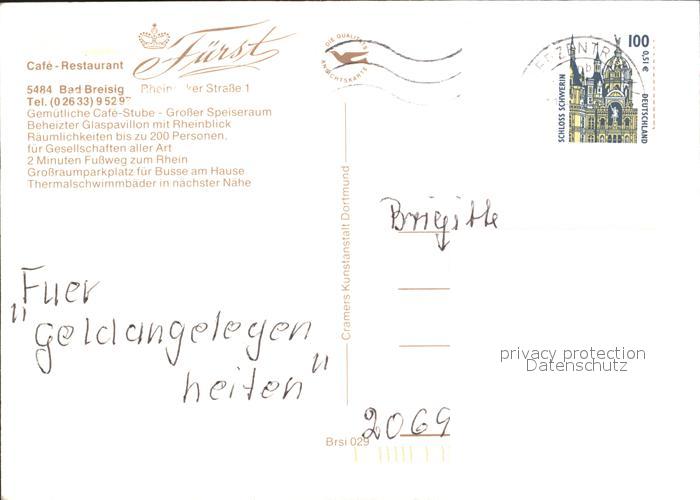 Café - Restaurant Fürst
5484 Bad Breisig
Straße 1
Tel. (0 26 33) 9 52 9
Gemütliche Café-Stube - Großer Speiseraum
Beheizter Glaspavillon mit Rheinblick
Räumlichkeiten bis zu 200 Personen,
für Gesellschaften aller Art
2 Minuten Fußweg zum Rhein
Großraumparkplatz für Busse am Hause
Thermalschwimmbäder in nächster Nähe
DIE QUALITÄTS
ANSICHTSKARTE
100
0,51 €
SCHLOSS SCHWERIN
DEUTSCHLAND
Cramers Kunstanstalt Dortmund
Brigitte
"Fuer
Geldangelegen
heiten"
privacy protection
Datenschutz
2069
Brsi 029